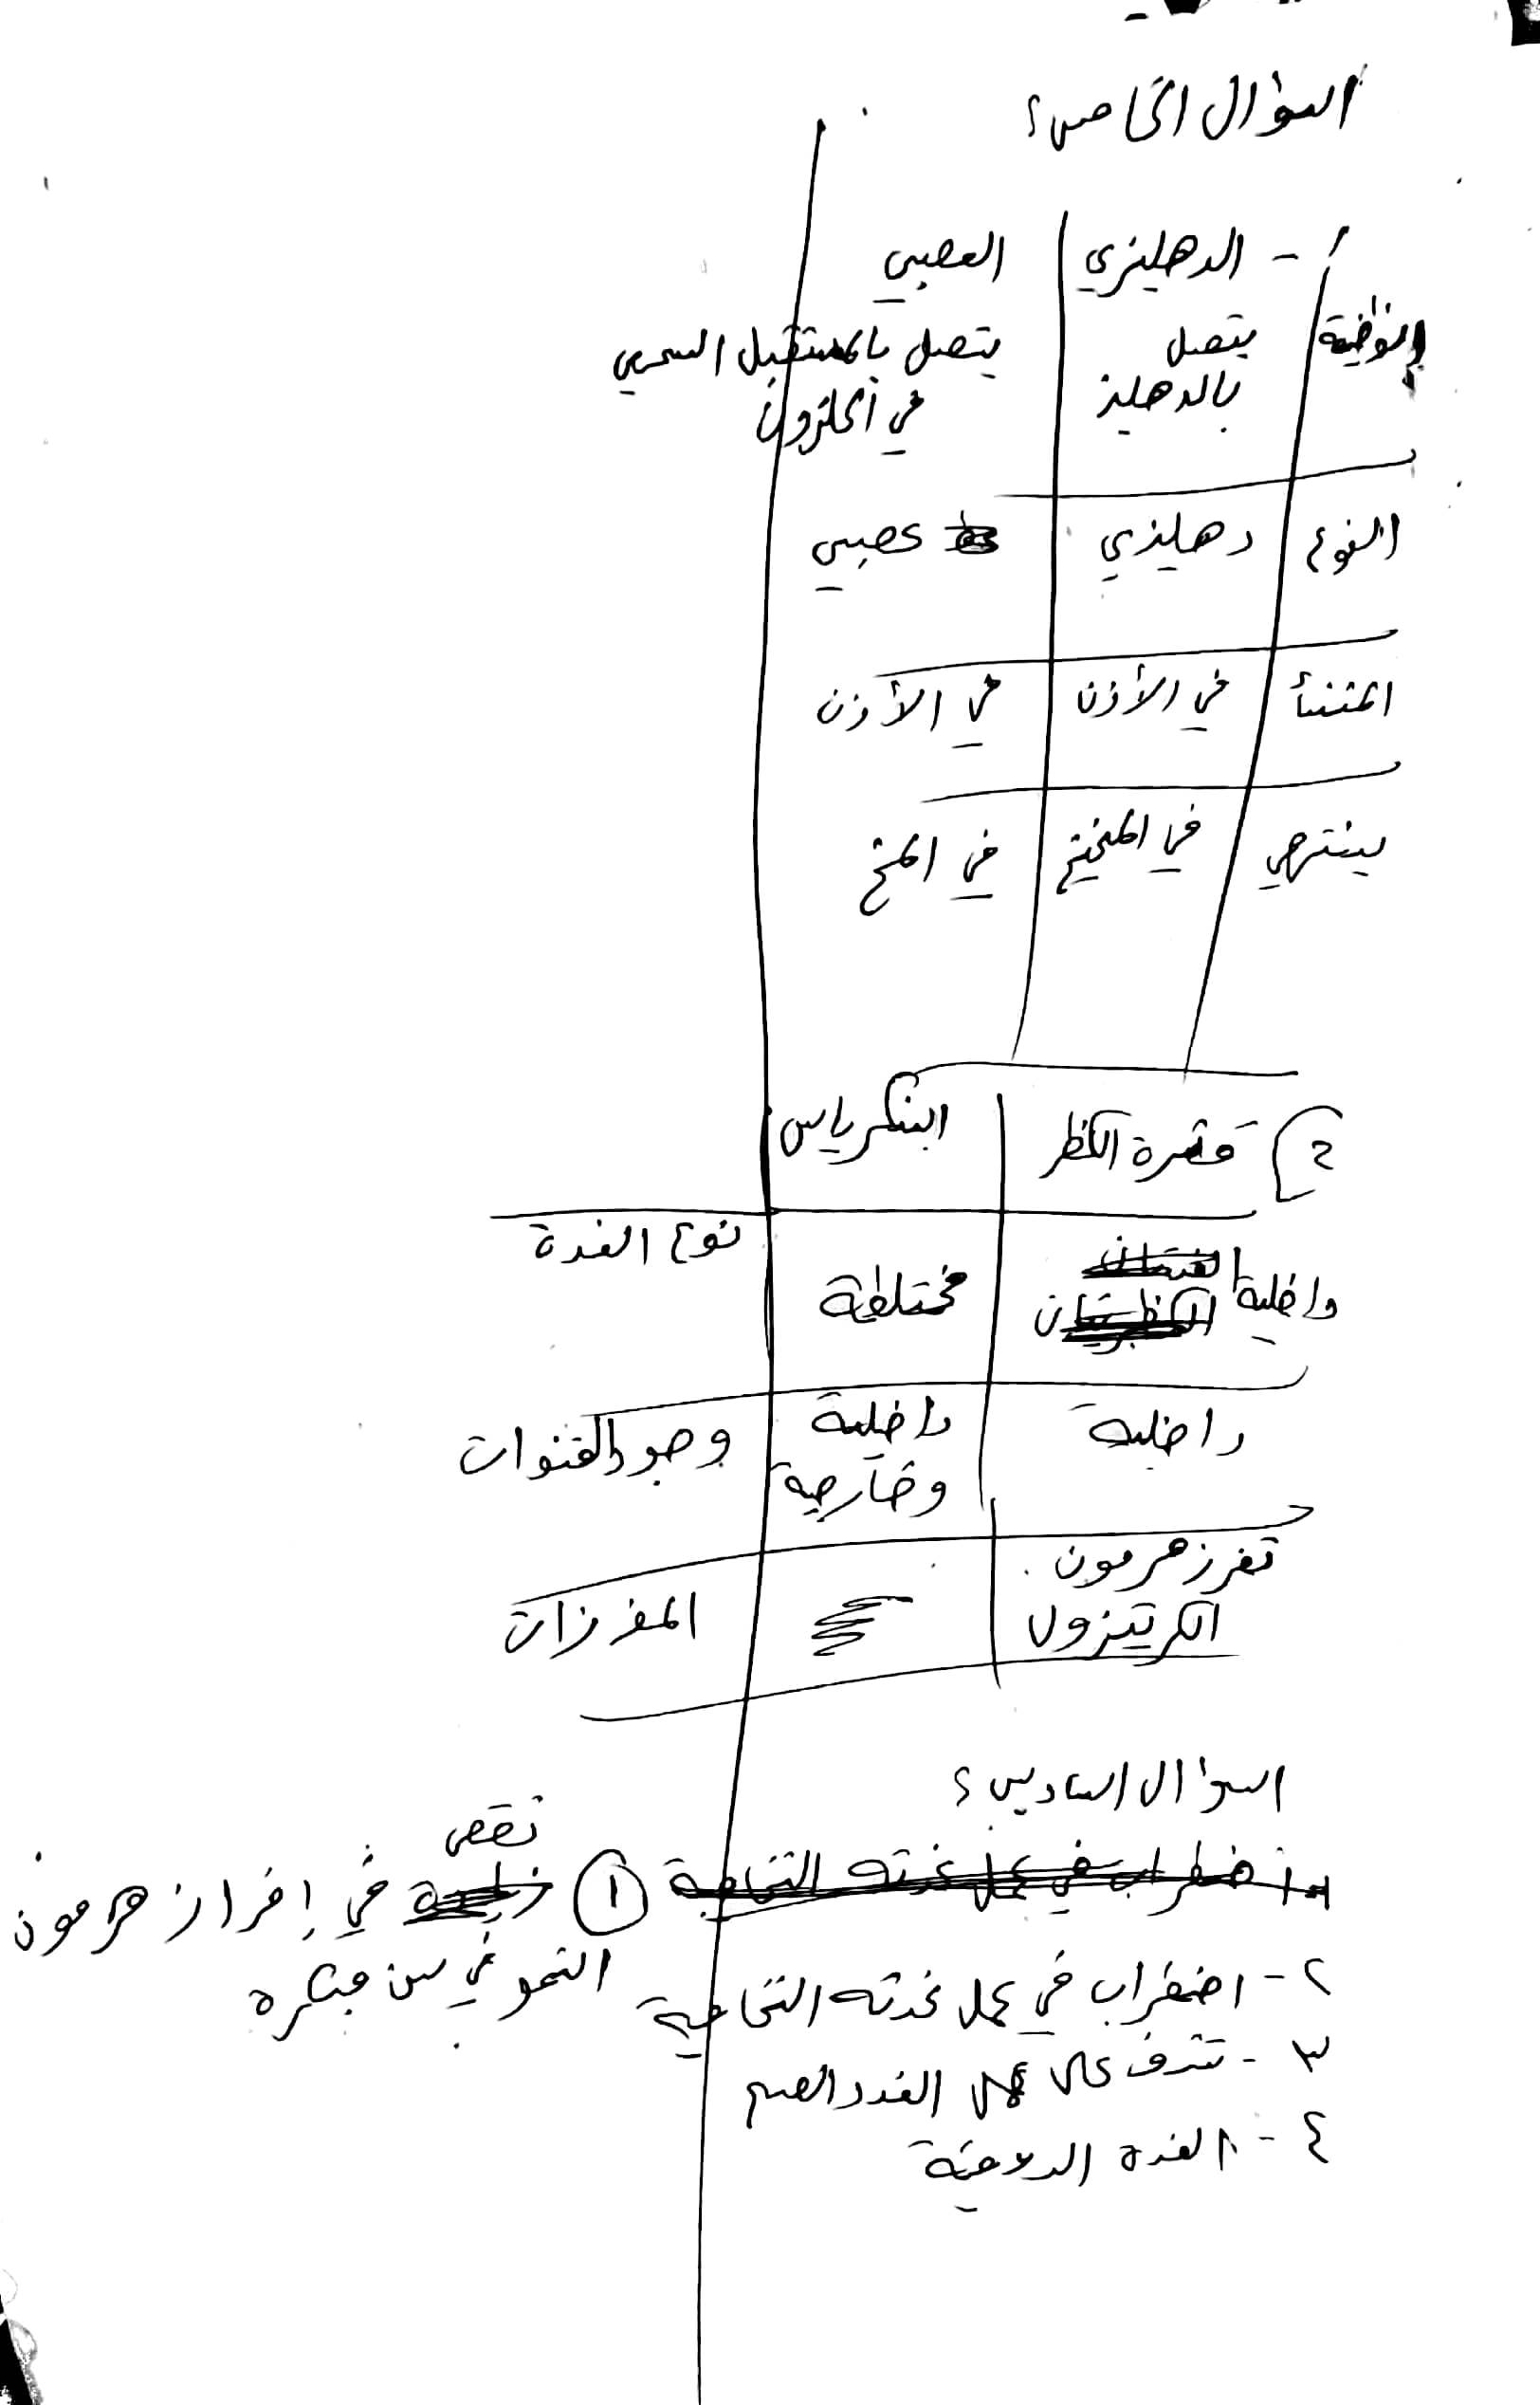 السؤال الخامس؟
أ - الدهليزي العصبي
الوظيفة يتصل يتصل بالمستقبل السمعي
بالدهليز في الحلزون
النوع دهليزي عصبي
المنشأ في الأذن في الأذن
ينتهي في المخيخ في المخ
2) قشرة الكظر البنكرياس
داخلية مختلطة نوع الغدة
داخلية داخلية وجود القنوات
وخارجية
تفرز هرمون
الكرتيزول المفرزات
السؤال السادس؟
نقص
1 في إفراز هرمون
النمو في سن مبكرة
٢- اضطراب في عمل غدته النخامية
٣- تشرف على عمل الغدد الصم
٤- الغدة الدرقية